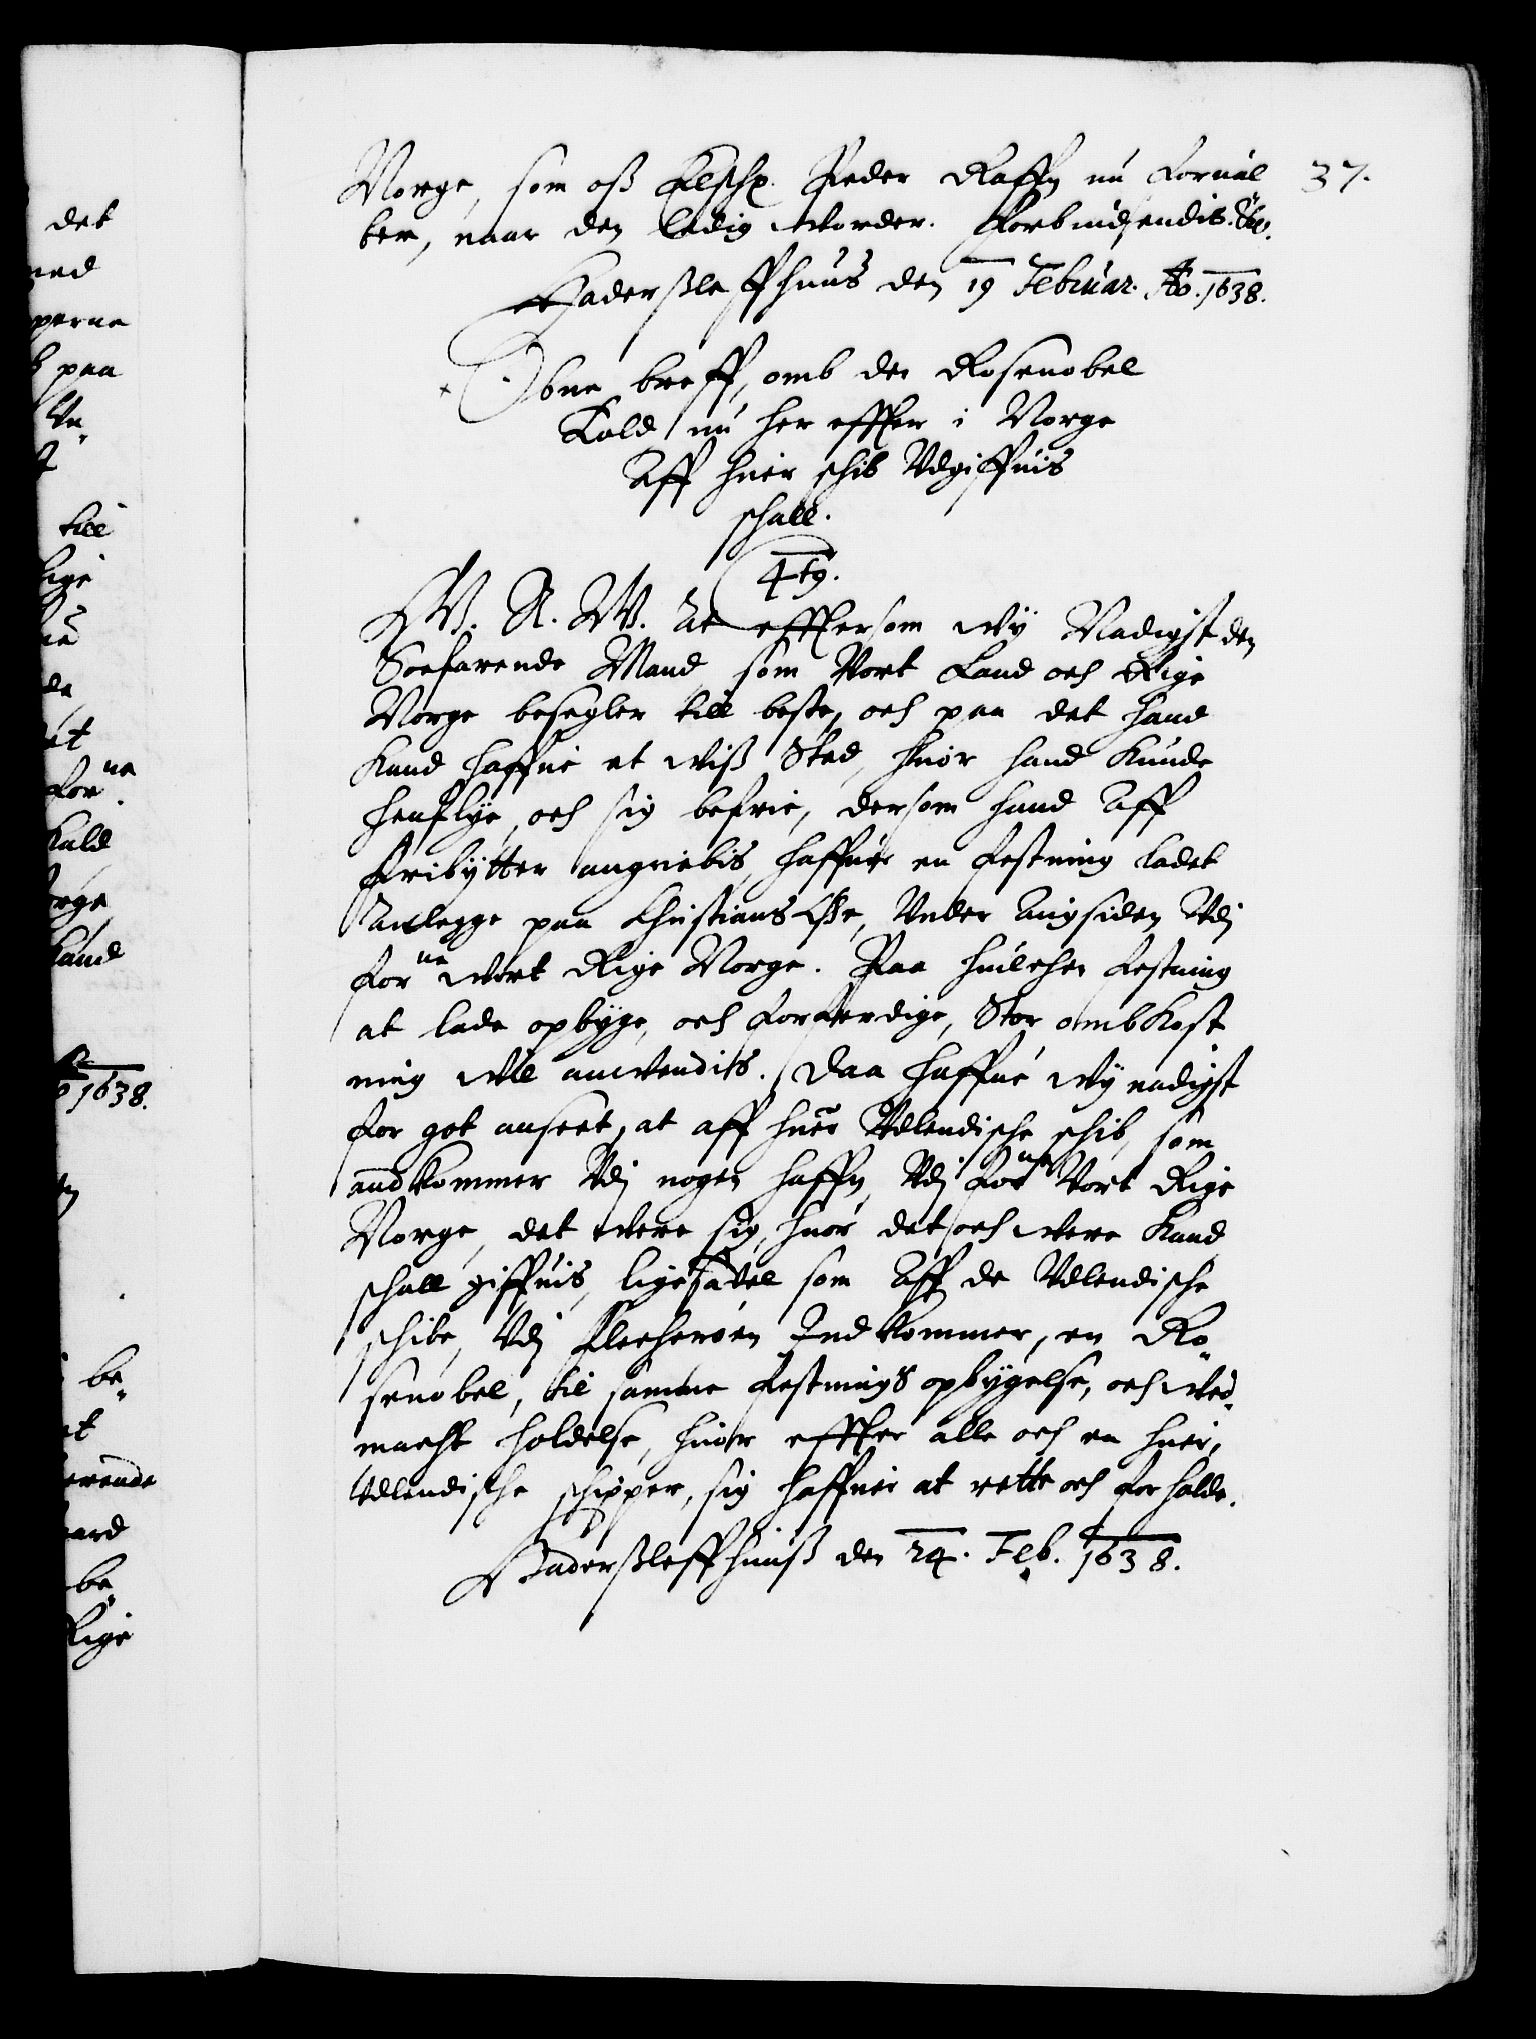 37.
Norge, som oß Elschr. Peder Raffn nu forual
ter, naar den ledig worder. Forbiudendis. &c.
Haderßleffhuus den 19 Februar. Ao. 1638.
Obne breff, omb den Rosenobel
Told nu her effter i Norge
Aff huer schib Udgiffuis
schall.
C 4ty.
W. A. W. At efftersom wy Naadigst den
Søefarende Mand som Vort Land och Rige
Norge besegler till beste, och paa det hand
Kand haffue et wiß Sted, huor hand Kunde
henflye, och sig befrie, dersom hand Aff
fribytter angriebis, haffuer en festning ladet
Anlegge paa Christians Øe, Under Agsiden Udj
for ne wort Rige Norge. Paa huilchen festning
at lade opbyge, och forferdige, Stor omb Kost
ning wil anwendis. Daa haffue wy nadigst
for got anseet, at aff huer Udlendische schib, som
andkommer Udj nogen haffn, Udj for ne Vort Rige
Norge, det were sig, huor det och were Kand
schall giffuis, ligesauel som Aff de Udlendische
schibe, Udj Flecherøen Indkommer, en Ro„
senobel, til samme festnings opbygelse, och wed„
macht holdelse, huor effter alle och en huer,
Udlendische schipper, sig haffuer at rette och forholde.
Haderßleffhuuß den 24. Feb. 1638.
det
perne
paa
till
ne
Kald
1638.
be„
et
be„
Rige